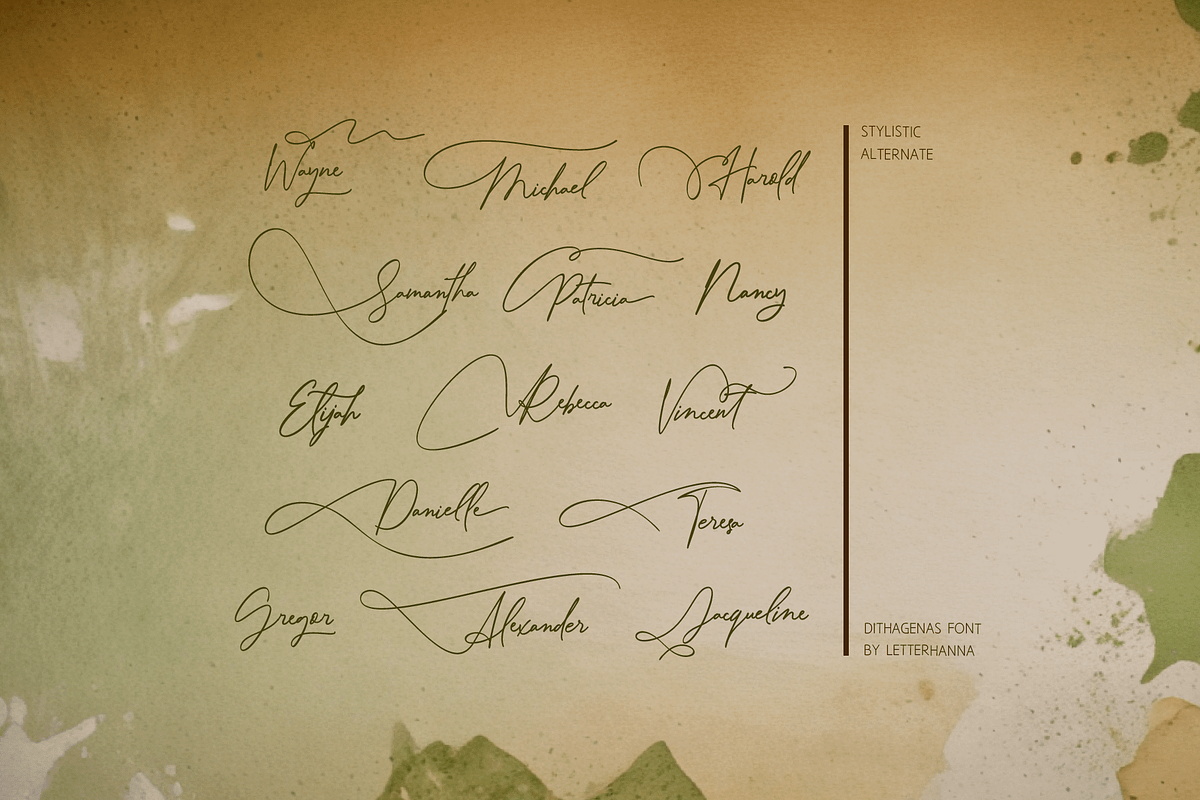 Wayne Michael Harold
Samantha Patricia Nancy
Elijah Rebecca Vincent
Danielle Teresa
Gregor Alexander Jacqueline
STYLISTIC
ALTERNATE
DITHAGENAS FONT
BY LETTERHANNA